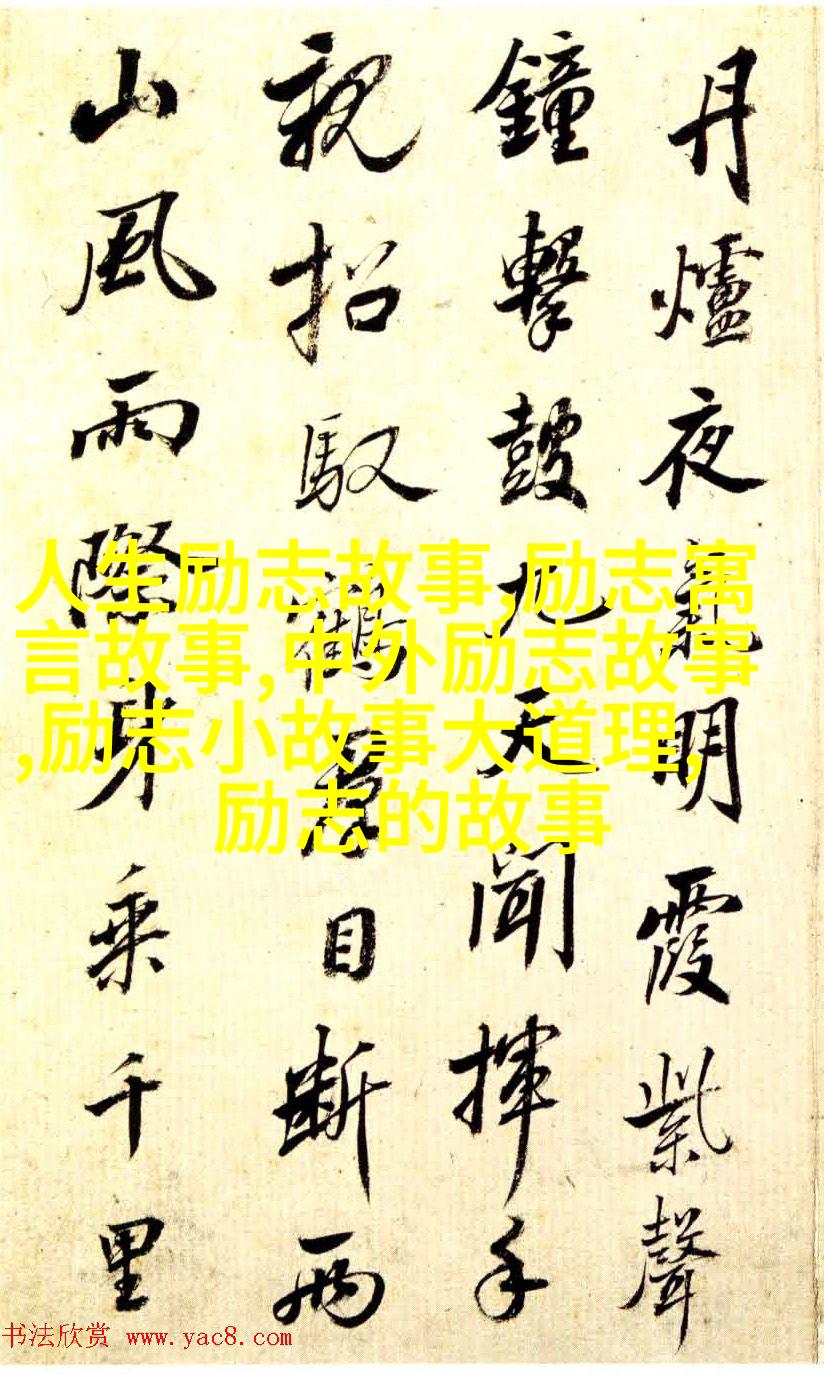 丹爐夜氣明霞紫聲
鐘擊鼓九天聞揮手
親招馭鶴目斷兩
山風雨際身乘千里
人生励志故事,励志寓
言故事,中外励志故事
,励志小故事大道理,
励志的故事
书法欣赏 www.yac8.com